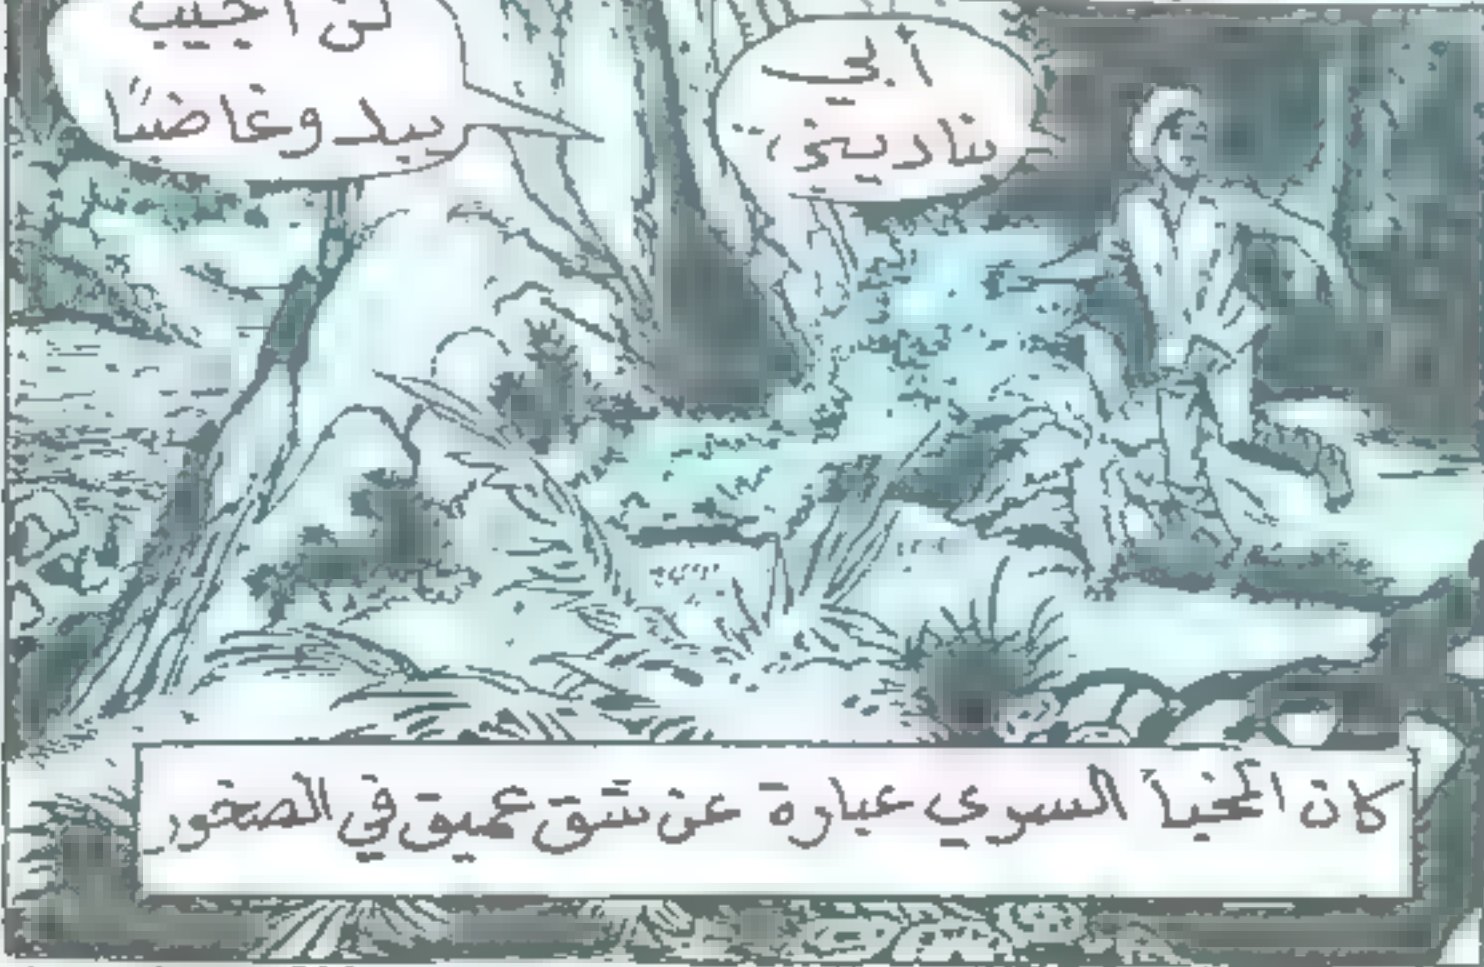 أبي
يناديني..
لن أجيب
يبدو غاضبًا
كان المخبأ السري عبارة عن شق عميق في الصخور